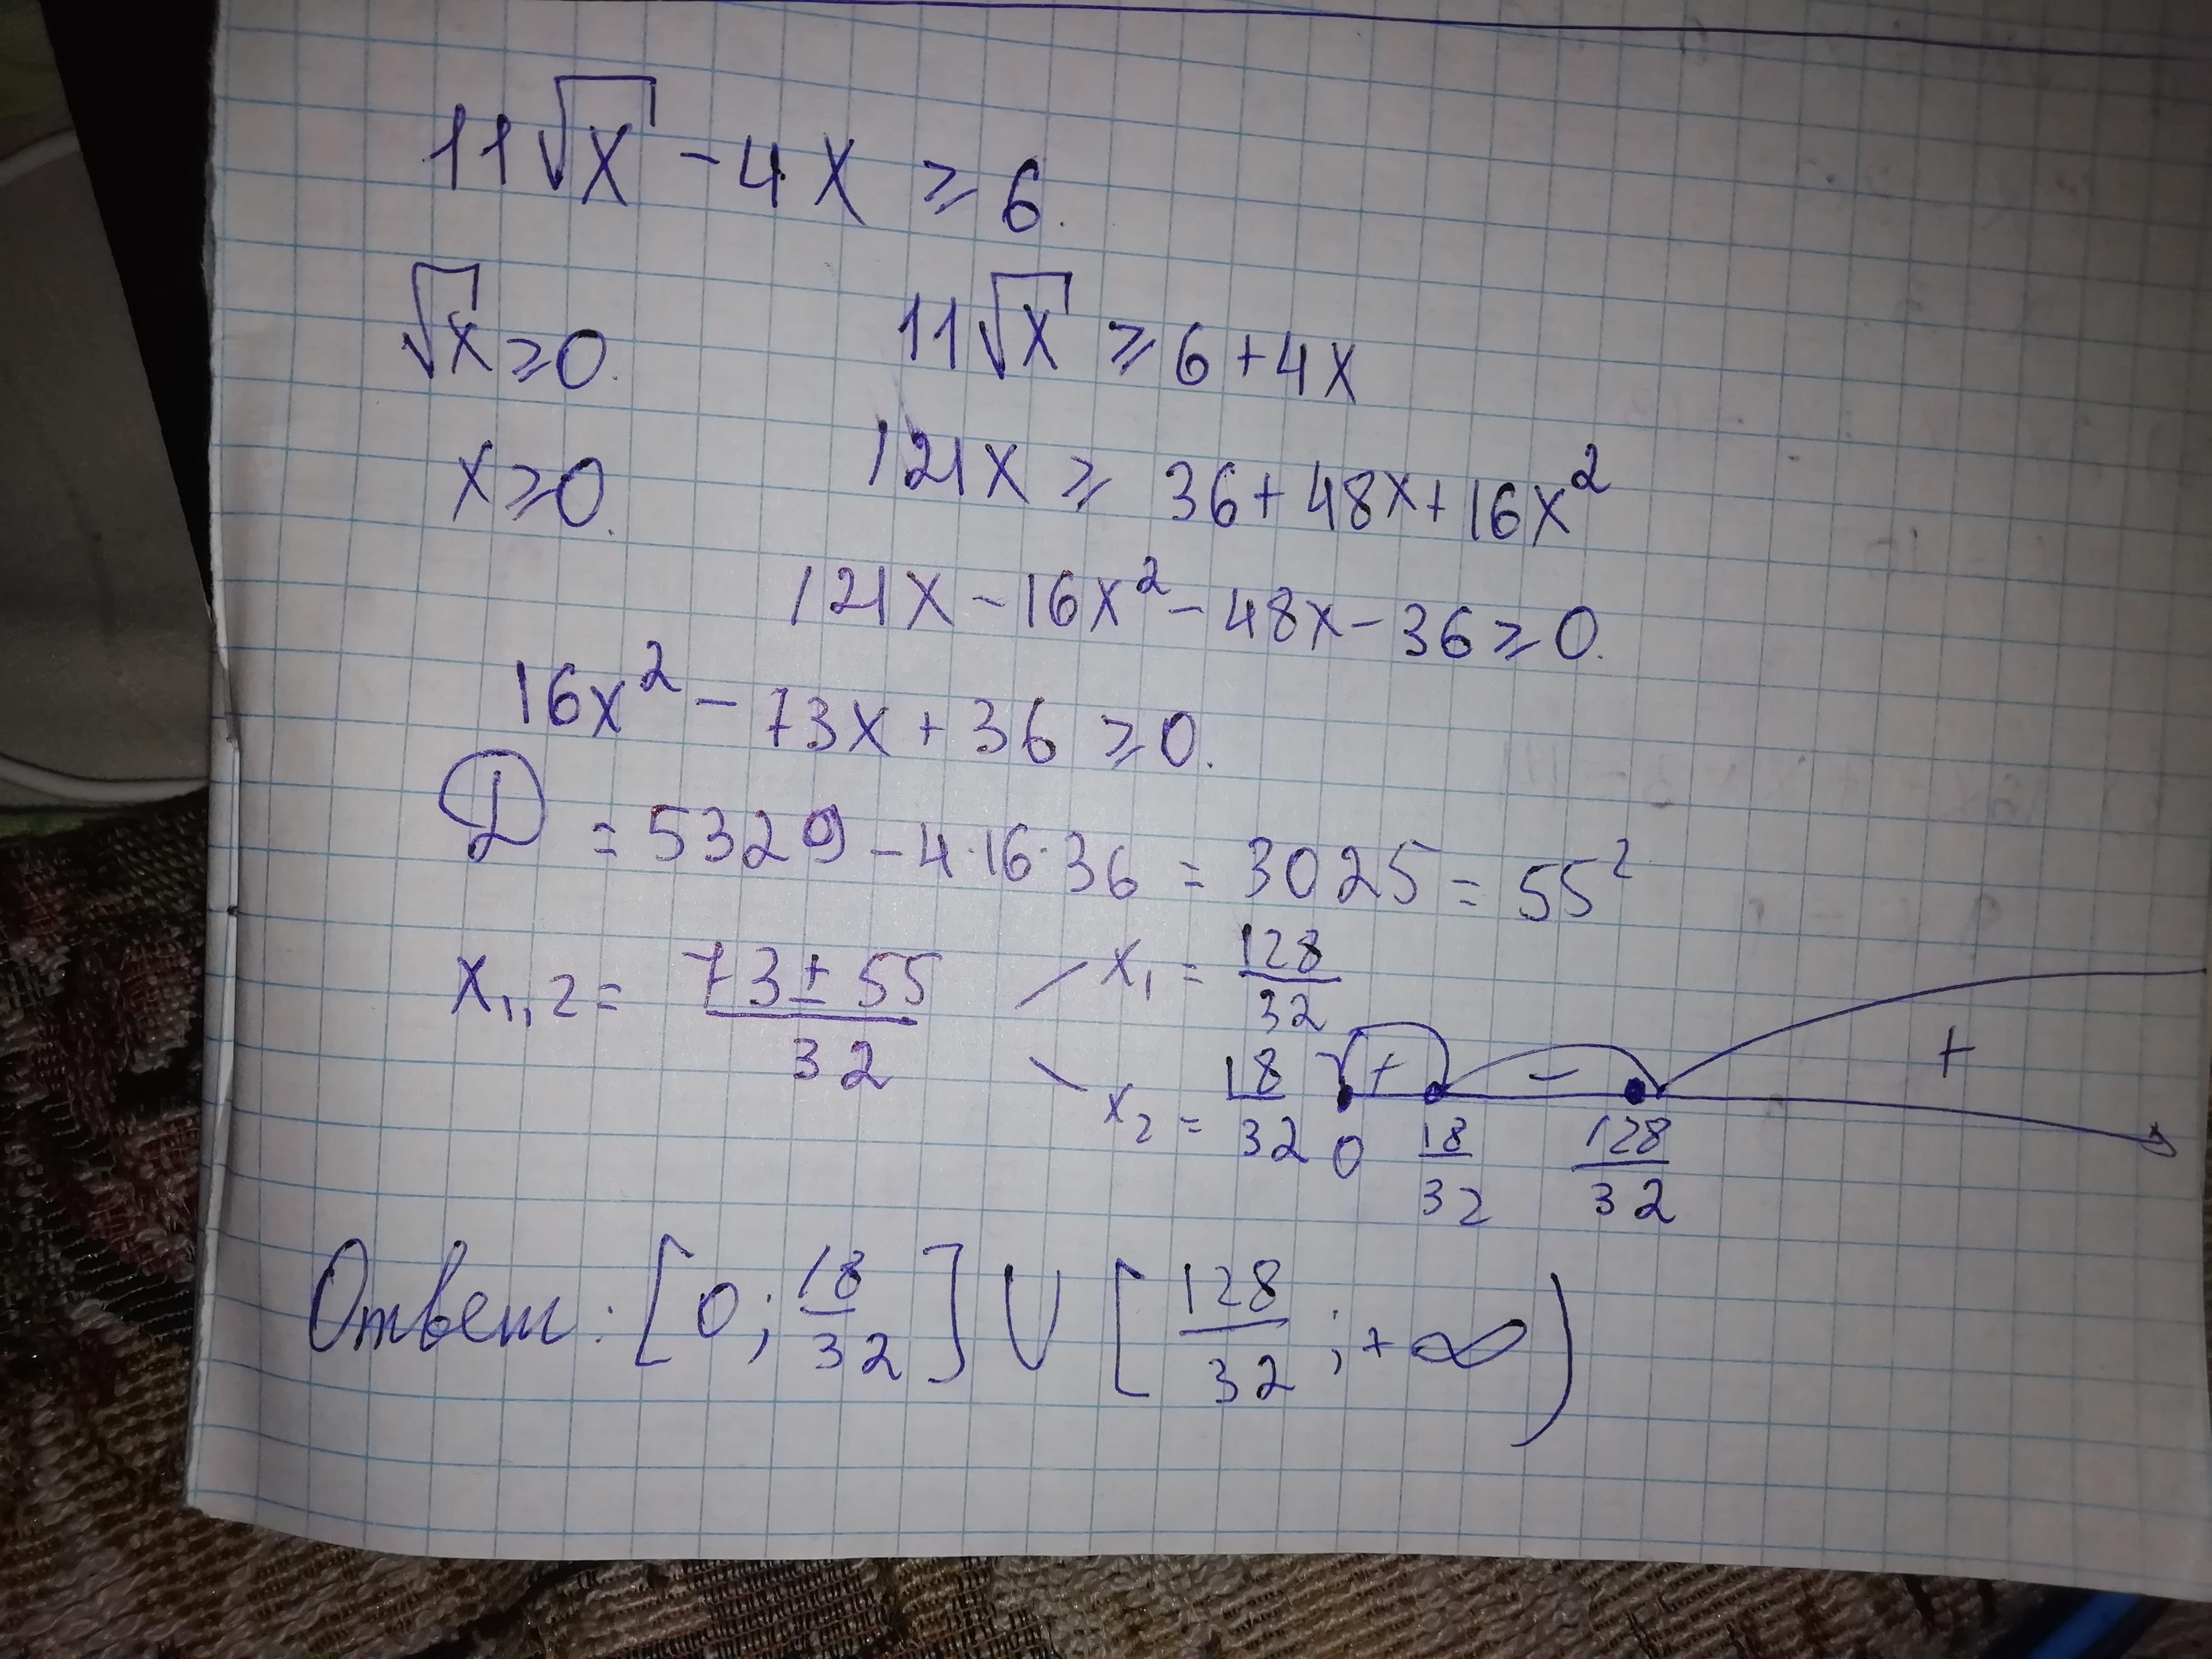 11√x - 4x ≥ 6.
√x ≥ 0. 11√x ≥ 6 + 4x
x ≥ 0. 121x ≥ 36 + 48x + 16x²
121x - 16x² - 48x - 36 ≥ 0.
16x² - 73x + 36 ≥ 0.
D = 5329 - 4·16·36 = 3025 = 55²
x₁,₂ = (73 ± 55)/32 x₁ = 128/32
x₂ = 18/32
+ - +
0 18/32 128/32
Ответ: [0; 18/32] ∪ [128/32; +∞)